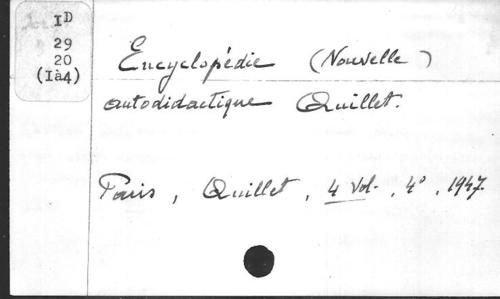 ID
29
20
(Ià4)
Encyclopédie (Nouvelle)
autodidactique Quillet.
Paris, Quillet, 4 vol., 4°, 1947.